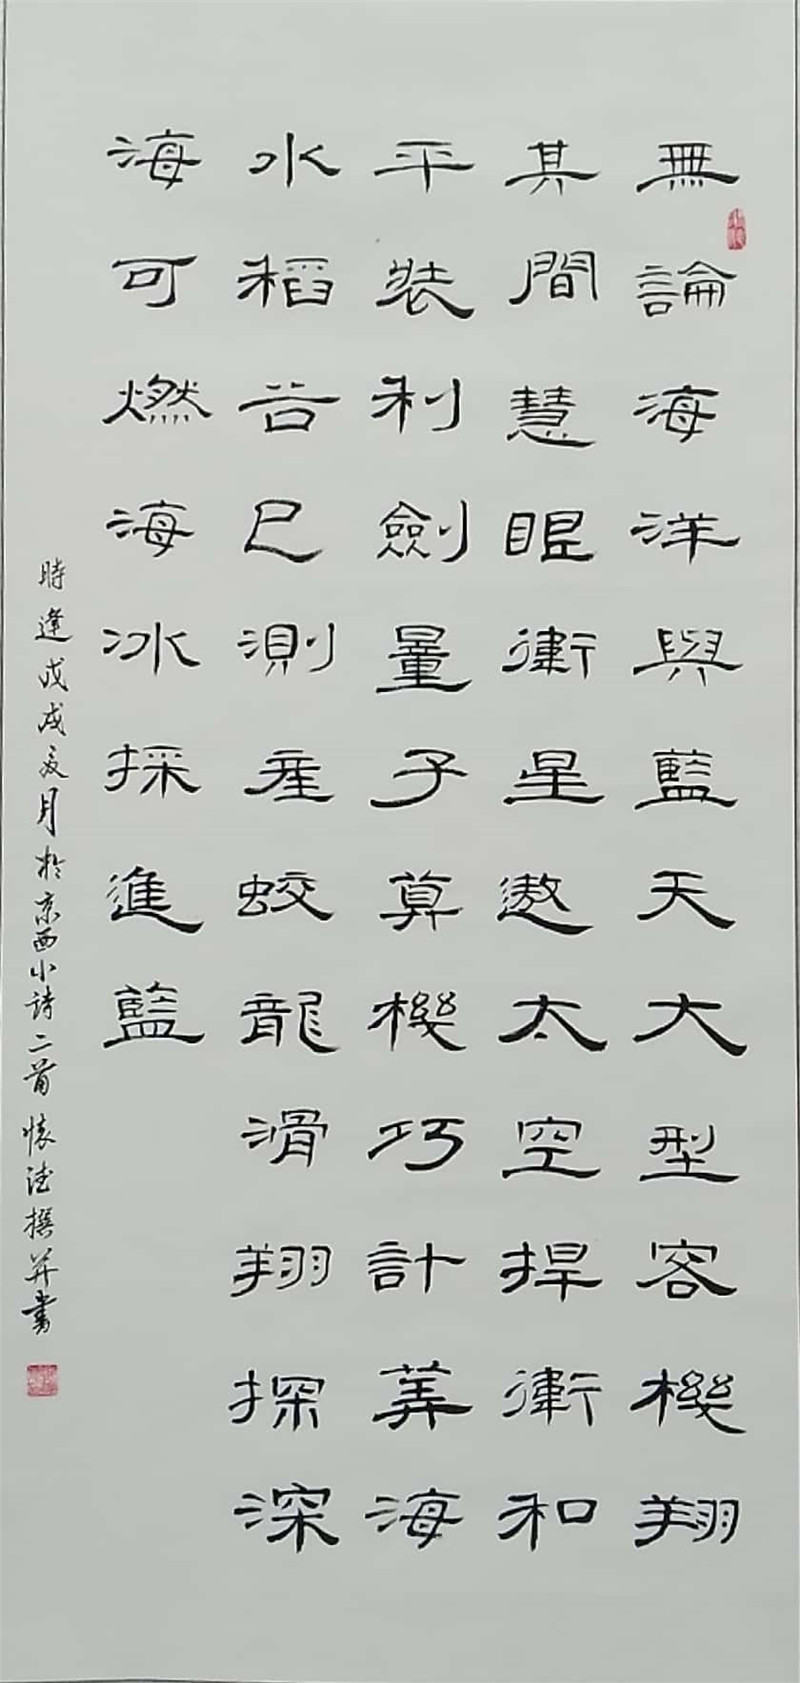 無論海洋與藍天大型客機翔
其間慧眼衛星遨太空捍衛和
平裝利劍量子算機巧計算海
水稻谷已測產蛟龍滑翔探深
海可燃海冰採進籃
時逢戊戌夏月於京西小詩二首懷德撰并書